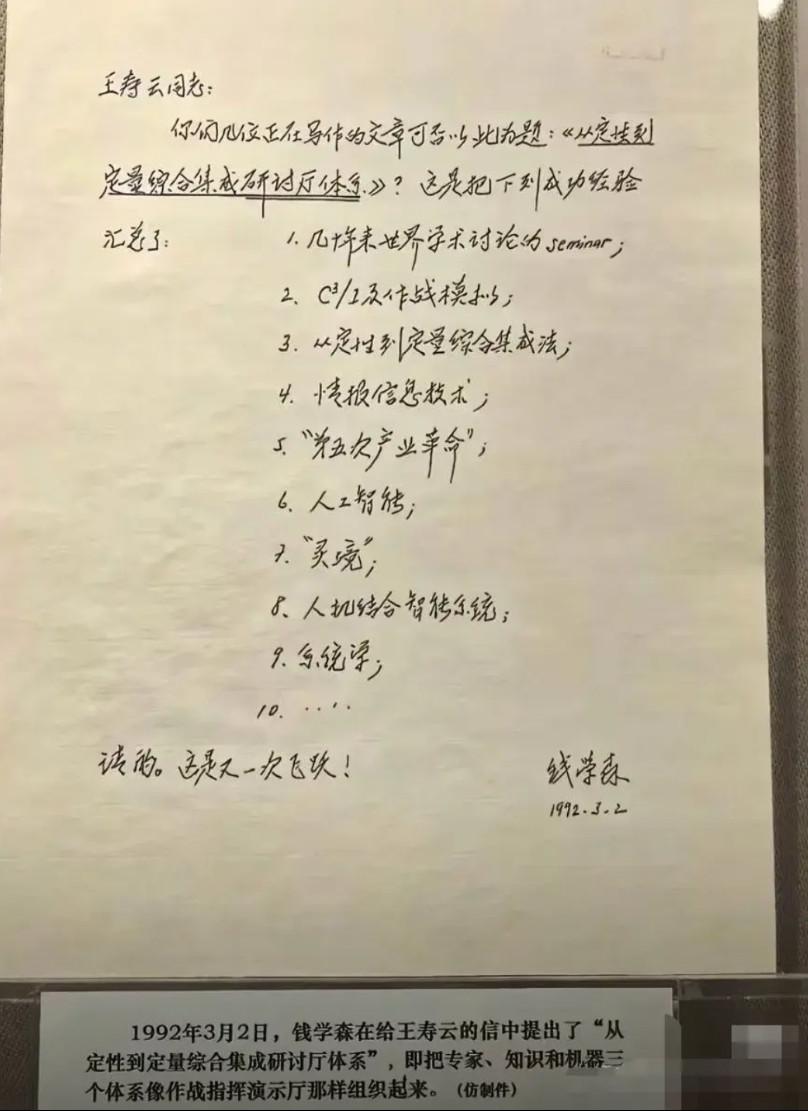 王寿云同志：
你们几位正在写作的文章可否以此为题：《从定性到
定量综合集成研讨厅体系》？这是把下列成功经验
汇总了： 1. 几十年来世界学术讨论的seminar；
2. C³/I及作战模拟；
3. 从定性到定量综合集成法；
4. 情报信息技术；
5. “第五次产业革命”；
6. 人工智能；
7. “灵境”；
8. 人机结合智能系统；
9. 系统学；
10. ·····
请酌。这是又一次飞跃！ 钱学森
1992.3.2
1992年3月2日，钱学森在给王寿云的信中提出了“从
定性到定量综合集成研讨厅体系”，即把专家、知识和机器三
个体系像作战指挥演示厅那样组织起来。（仿制件）